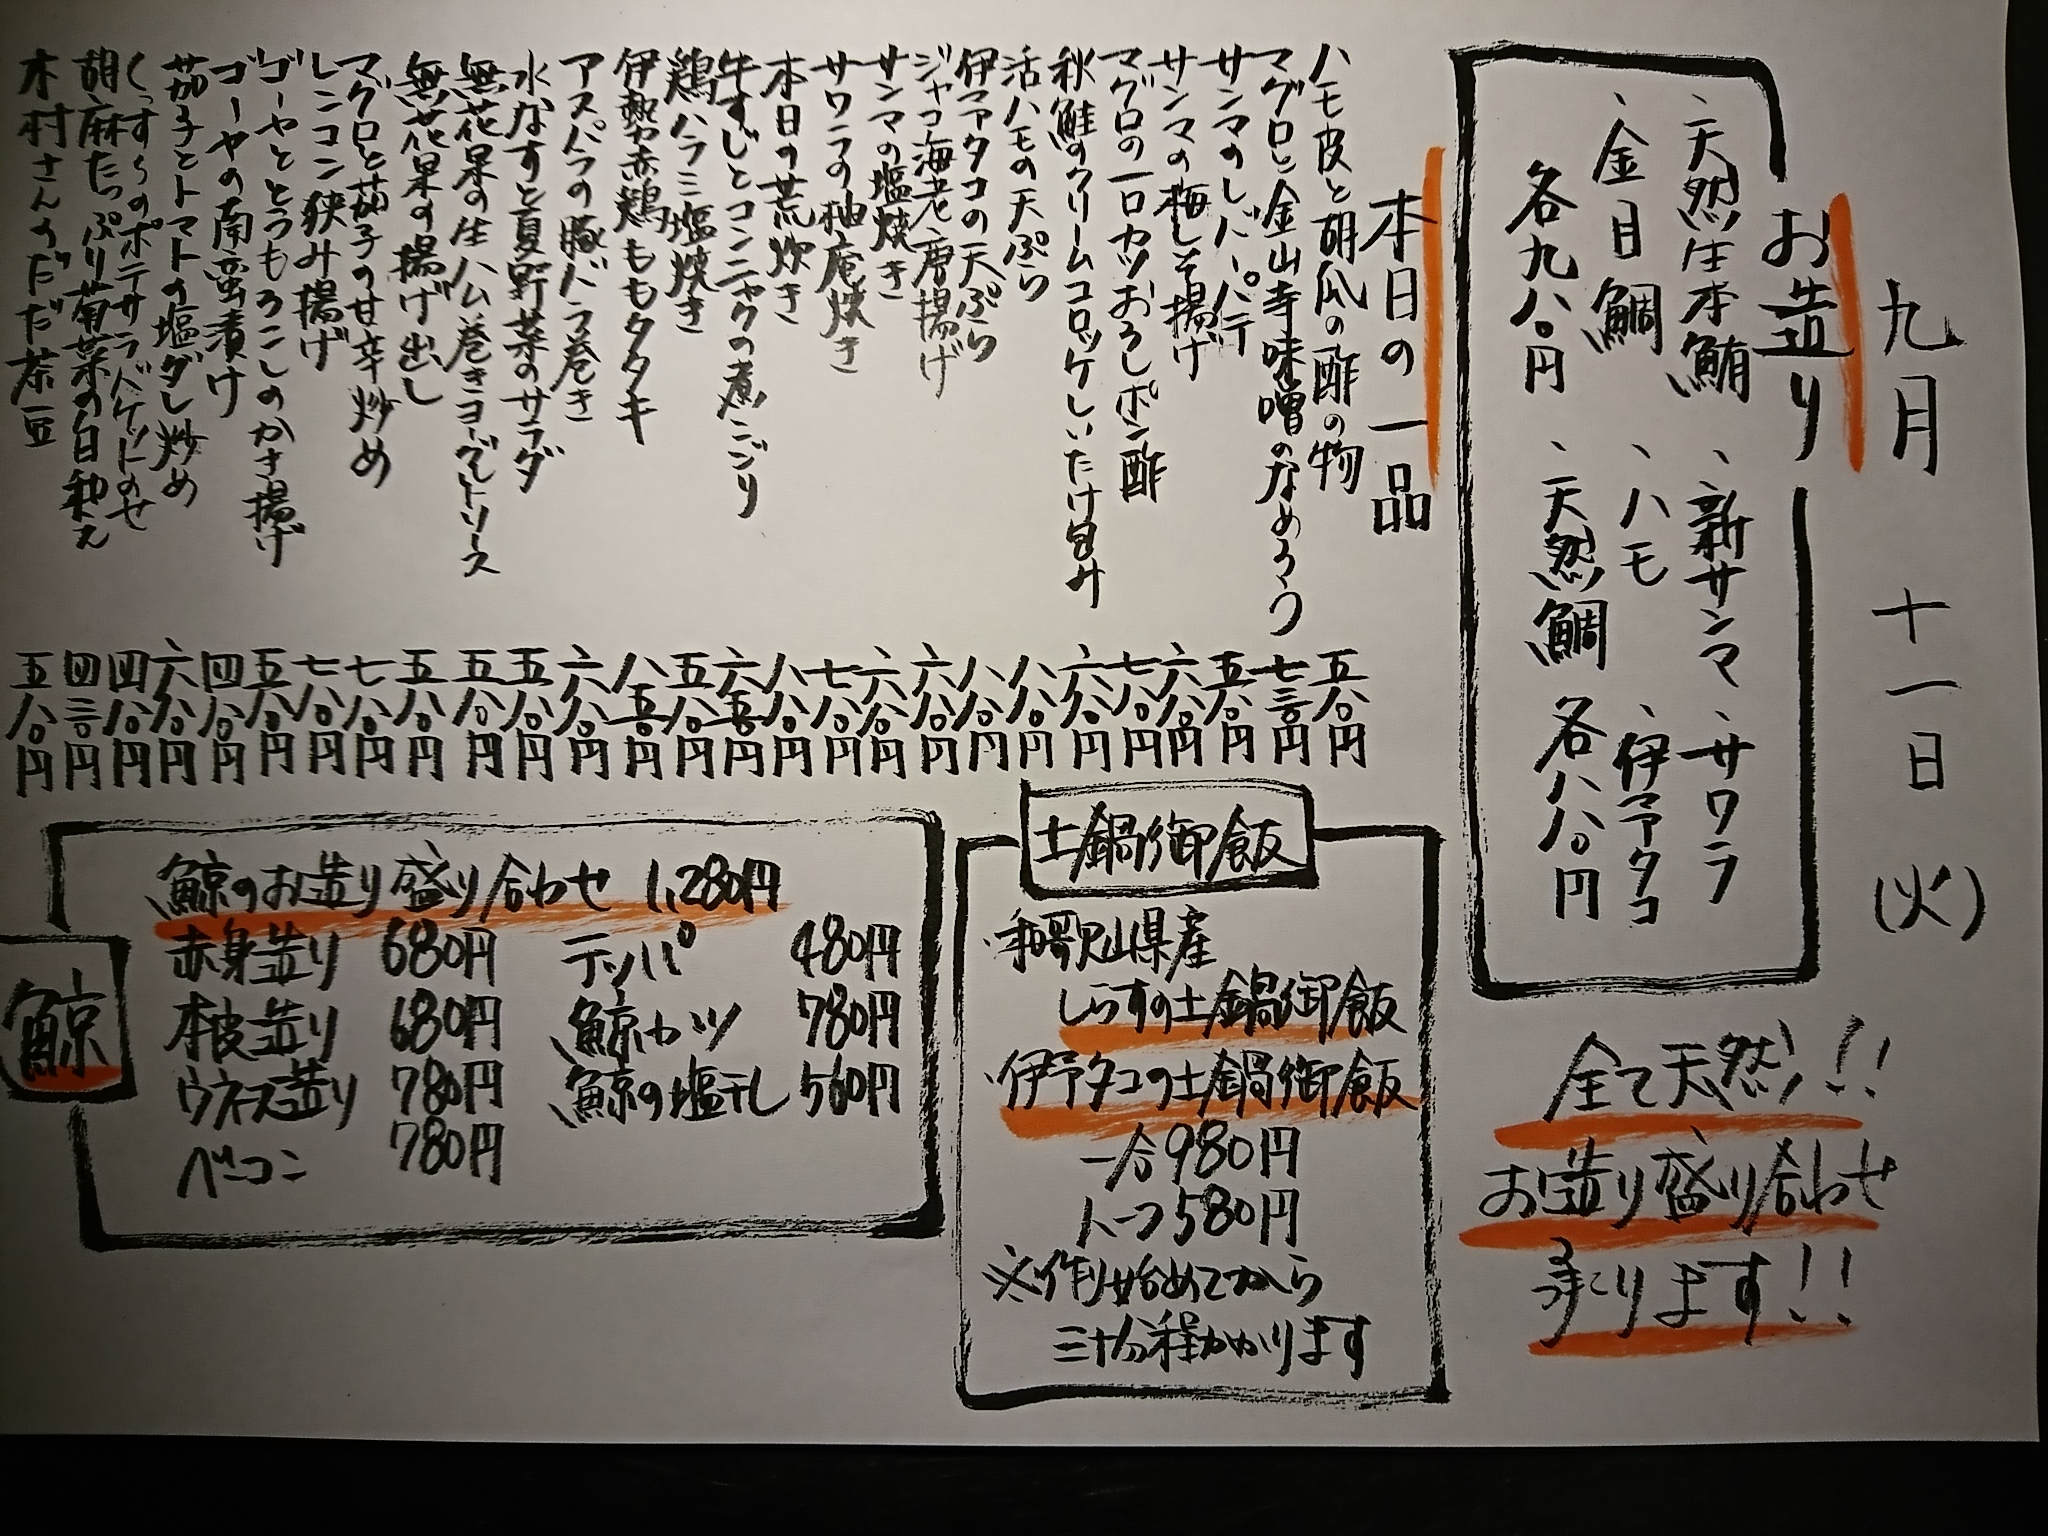 九月 十一日 (火)
お造り
、天然生本鮪 、新サンマ 、サワラ
、金目鯛 、ハモ 、伊予タコ
各九八〇円 、天然鯛 各八八〇円
全て天然!!
お造り盛り合わせ
承ります!!
本日の一品
ハモ皮と胡瓜の酢の物 五八〇円
マグロと金山寺味噌のなめろう 七三〇円
サンマのレバーパテ 五八〇円
サンマの梅しそ揚げ 六八〇円
マグロの一口カツおろしポン酢 七八〇円
秋鮭のクリームコロッケしいたけ包み 六八〇円
活ハモの天ぷら 八八〇円
伊予タコの天ぷら 八八〇円
ジャコ海老唐揚げ 六八〇円
サンマの塩焼き 六八〇円
サワラの柚庵焼き 七八〇円
本日の荒炊き 八八〇円
牛すじとコンニャクの煮こごり 六五〇円
鶏ハラミ塩焼き 五八〇円
伊勢赤鶏ももタタキ 八五〇円
アスパラの豚バラ巻き 六八〇円
水なすと夏野菜のサラダ 五八〇円
無花果の生ハム巻きヨーグルトソース 五八〇円
無花果の揚げ出し 五八〇円
マグロと茄子の甘辛炒め 七八〇円
レンコン挟み揚げ 七八〇円
ゴーヤととうもろこしのかき揚げ 五八〇円
ゴーヤの南蛮漬け 四八〇円
茄子とトマトの塩ダレ炒め 六八〇円
ポテサラバケットのせ 四八〇円
胡麻たっぷり菊菜の白和え 四三〇円
木村さんのだだ茶豆 五八〇円
土鍋御飯
・和歌山県産
しらすの土鍋御飯
・伊予タコの土鍋御飯
一合980円
ハーフ580円
※作り始めてから
三十分程かかります
鯨
鯨のお造り盛り合わせ 1,280円
赤身造り 680円 テッパ 480円
本皮造り 680円 鯨カツ 780円
ウネス造り 780円 鯨の塩干し 560円
ベーコン 780円